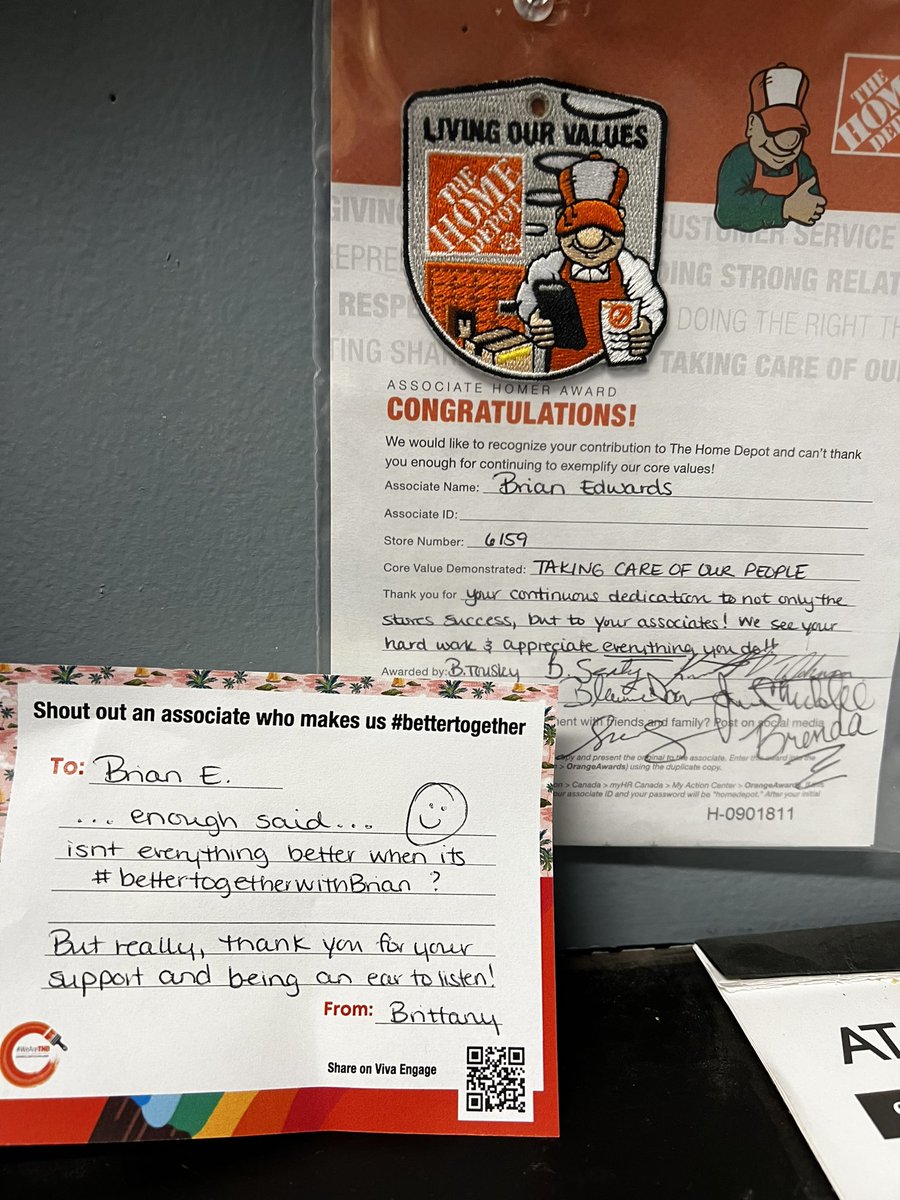 LIVING OUR VALUES
THE HOME DEPOT
THE HOME DEPOT
GIVING CUSTOMER SERVICE
DING STRONG RELAT
RESPE DOING THE RIGHT TH
TING SHA TAKING CARE OF OU
ASSOCIATE HOMER AWARD
CONGRATULATIONS!
We would like to recognize your contribution to The Home Depot and can't thank
you enough for continuing to exemplify our core values!
Associate Name: Brian Edwards
Associate ID:
Store Number: 6159
Core Value Demonstrated: TAKING CARE OF OUR PEOPLE
Thank you for your continuous dedication to not only the
stores success, but to your associates! We see your
hard work & appreciate everything you do!!
Awarded by: B. Tousley
Brenda
ent with friends and family? Post on social media
opy and present the original to the associate. Enter
> OrangeAwards) using the duplicate copy.
on > Canada > myHR Canada > My Action Center > OrangeAwards.
our associate ID and your password will be "homedepot." After your initial
H-0901811
Shout out an associate who makes us #bettertogether
To: Brian E.
... enough said...
isnt everything better when its
#bettertogetherwithBrian ?
But really, thank you for your
support and being an ear to listen!
From: Brittany
#WeAreTHD
Share on Viva Engage
AT